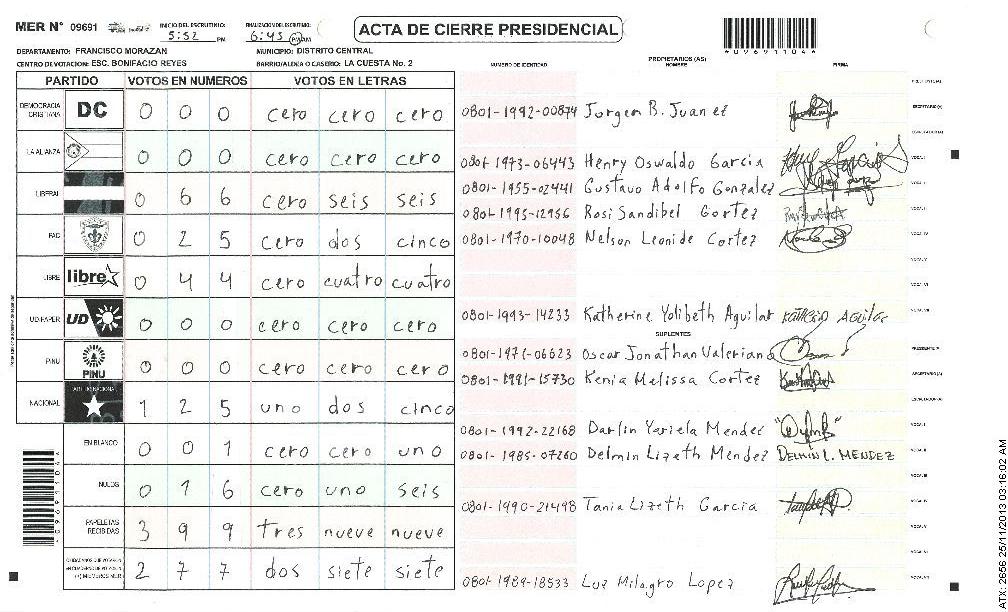 MER N° 09691 INICIO DEL ESCRUTINIO: 5:52 PM FINALIZACION ESCRUTINIO: 6:45 PM/AM
ACTA DE CIERRE PRESIDENCIAL
*09691104*
DEPARTAMENTO: FRANCISCO MORAZAN MUNICIPIO: DISTRITO CENTRAL
CENTRO DE VOTACION: ESC. BONIFACIO REYES BARRIO/ALDEA O CASERIO: LA CUESTA No. 2
PARTIDO VOTOS EN NUMEROS VOTOS EN LETRAS
DEMOCRACIA CRISTIANA DC 0 0 0 cero cero cero
LA ALIANZA 0 0 0 cero cero cero
LIBERAL 0 6 6 cero seis seis
PAC 0 2 5 cero dos cinco
LIBRE libre 0 4 4 cero cuatro cuatro
UD FAPER UD 0 0 0 cero cero cero
PINU PINU 0 0 0 cero cero cero
NACIONAL 1 2 5 uno dos cinco
EN BLANCO 0 0 1 cero cero uno
NULOS 0 1 6 cero uno seis
PAPELETAS RECIBIDAS 3 9 9 tres nueve nueve
2 7 7 dos siete siete
NUMERO DE IDENTIDAD PROPIETARIOS (AS) NOMBRE FIRMA
0801-1992-00874 Jorgen B. Juanez
0801-1973-06443 Henry Oswaldo Garcia
0801-1955-02441 Gustavo Adolfo Gonzalez
0801-1995-12956 Rosi Sandibel Cortez
0801-1970-10048 Nelson Leonide Cortez
0801-1993-14233 Katherine Yolibeth Aguilar
SUPLENTES
0801-1971-06623 Oscar Jonathan Valeriano
0801-1991-15730 Kenia Melissa Cortez
0801-1992-22168 Darlin Yariela Mendez
0801-1985-07260 Delmin Lizeth Mendez DELMIN L. MENDEZ
0801-1990-21498 Tania Lizeth Garcia
0801-1989-18533 Luz Milagro Lopez
ATX: 2656 25/11/2013 03:16:02 AM